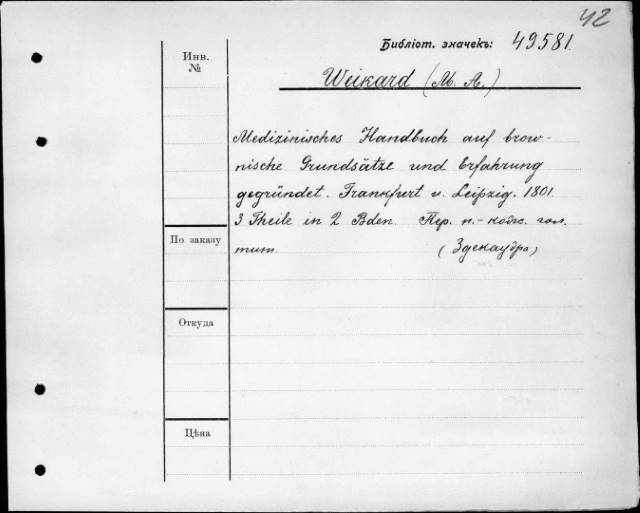 42
Библіот. значекъ: 49581.
Инв.
№
Weikard (M. A.)
Medizinisches Handbuch auf brow-
nische Grundsätze und Erfahrung
gegründet. Frankfurt u. Leipzig. 1801.
3 Theile in 2 Bden. Пер. п.-кож. гол.
тит. (Здекаура)
По заказу
Откуда
Цѣна